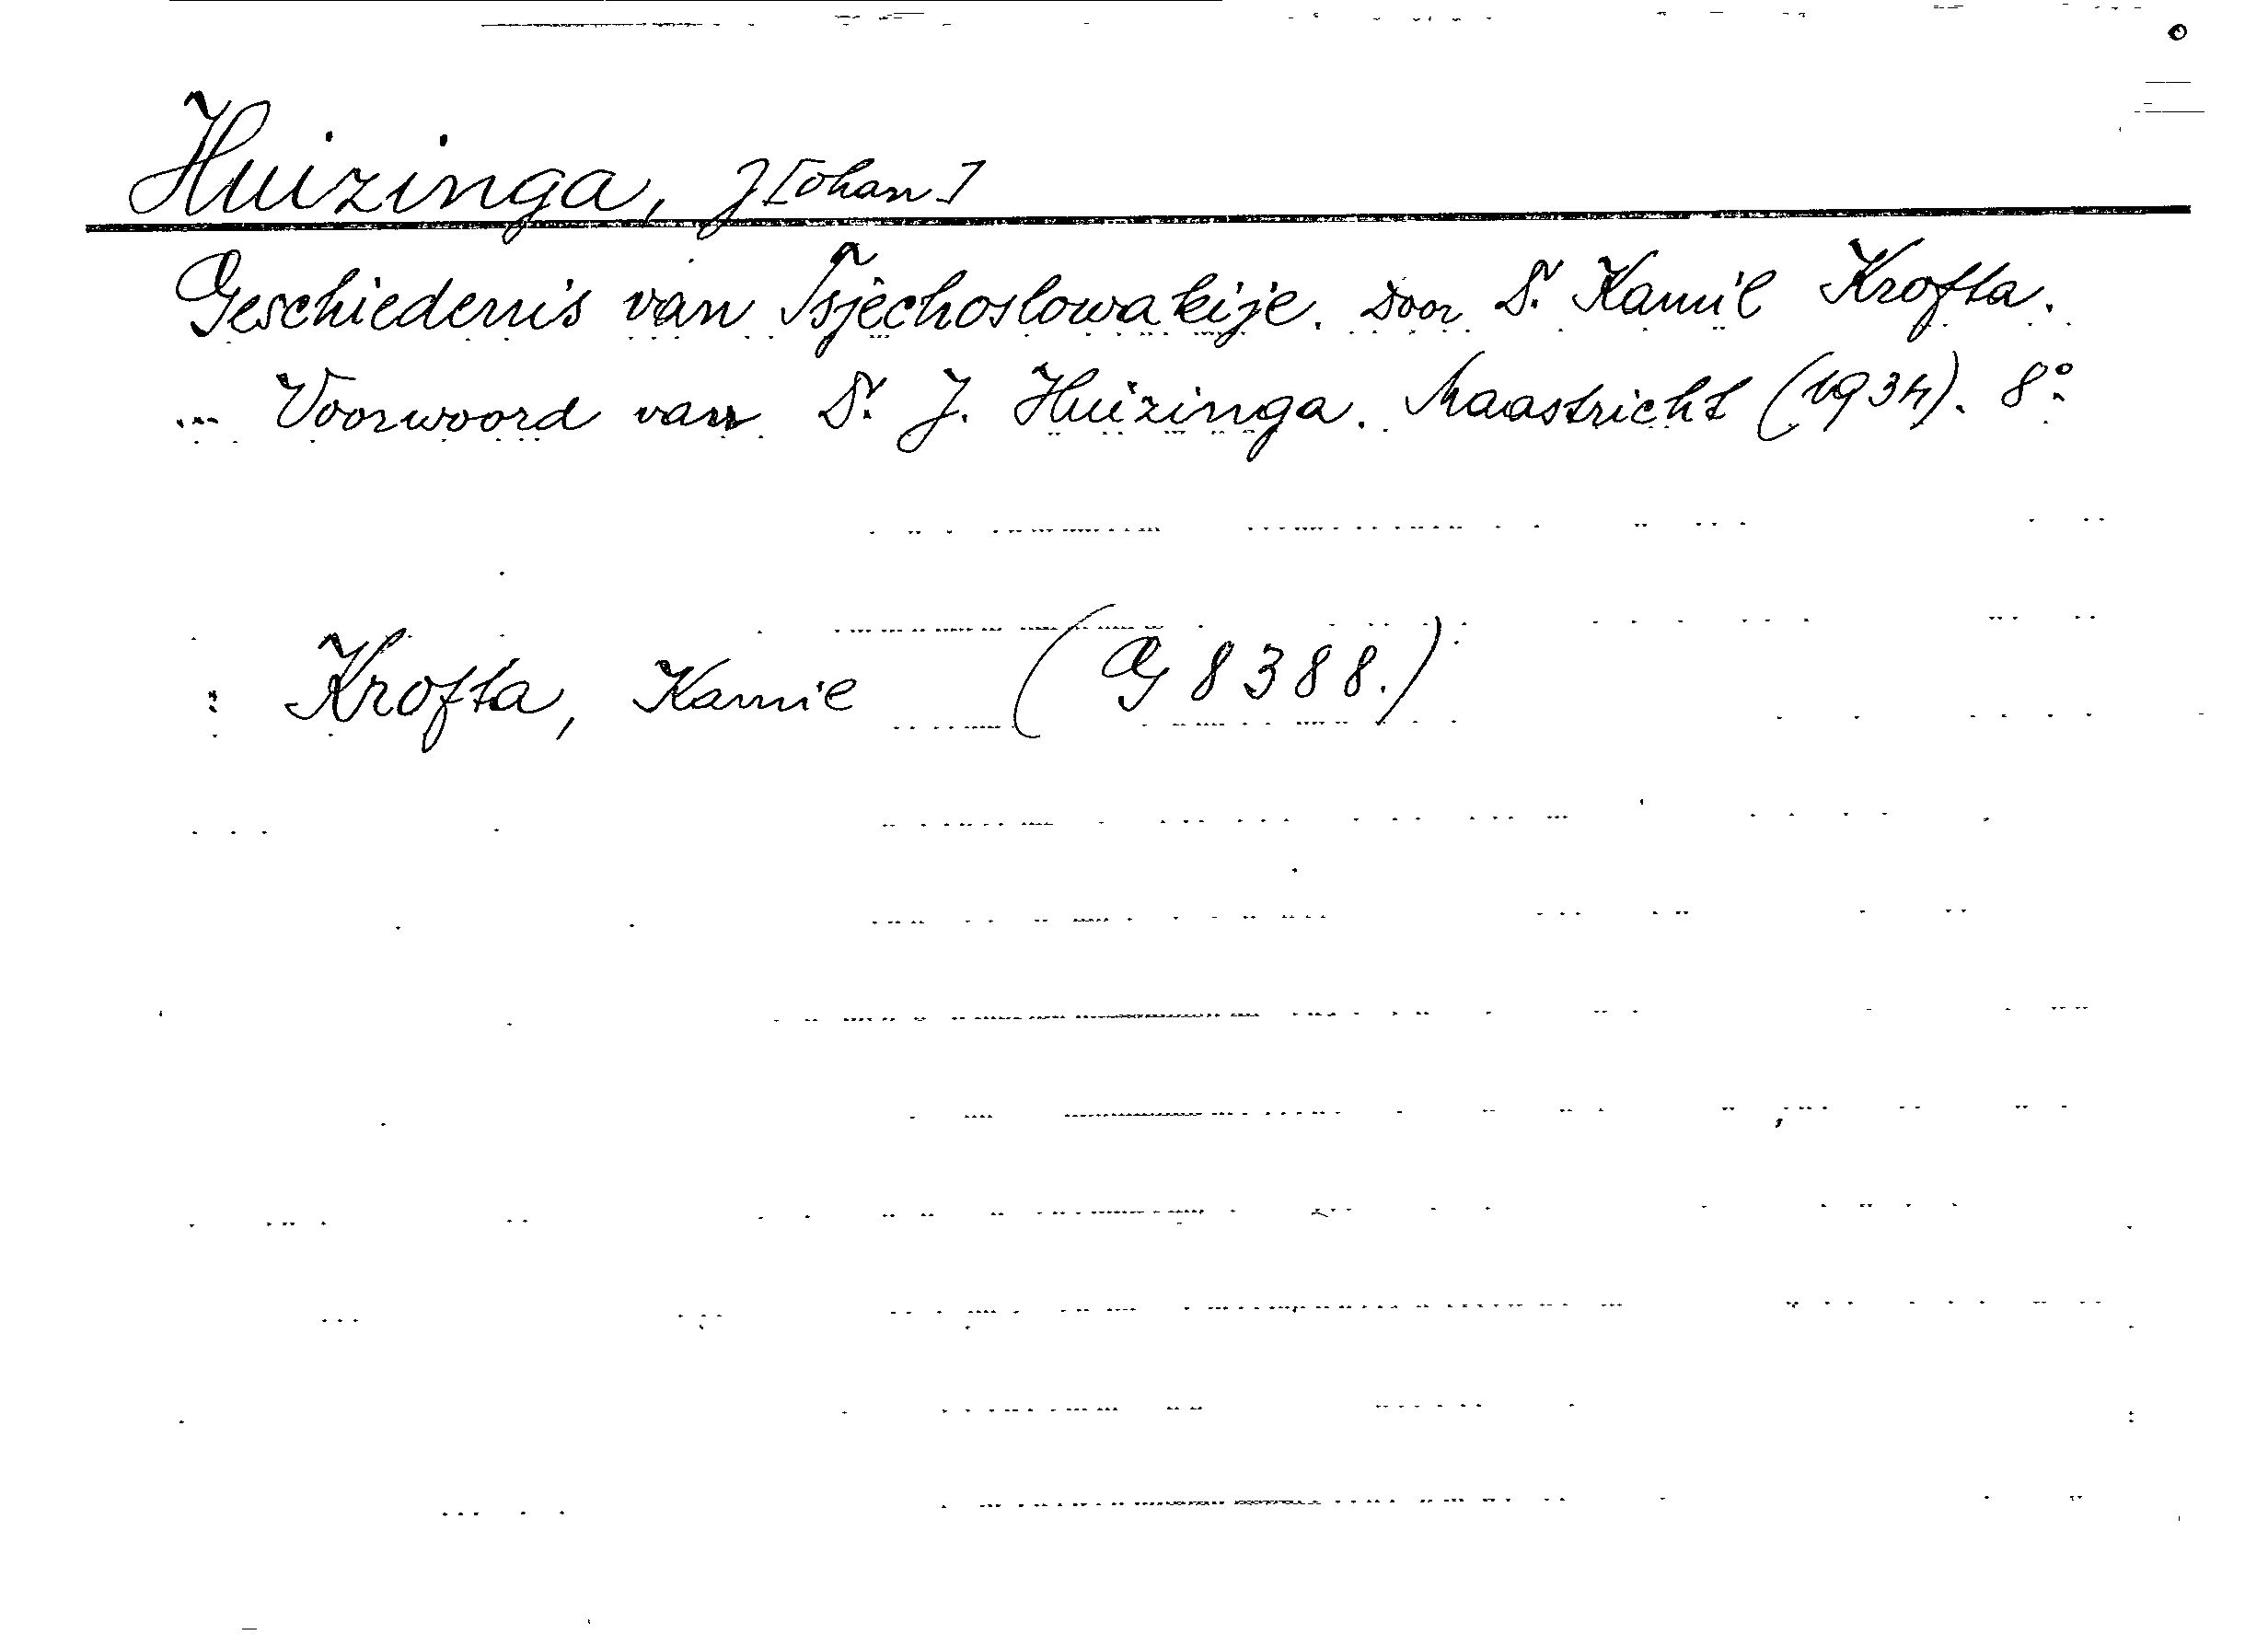 Huizinga, J[ohan]
Geschiedenis van Tsjechoslowakije. Door Dr. Kamil Krofta.
... Voorwoord van Dr. J. Huizinga. Maastricht (1934). 8°.
: Krofta, Kamil (G 8388.)